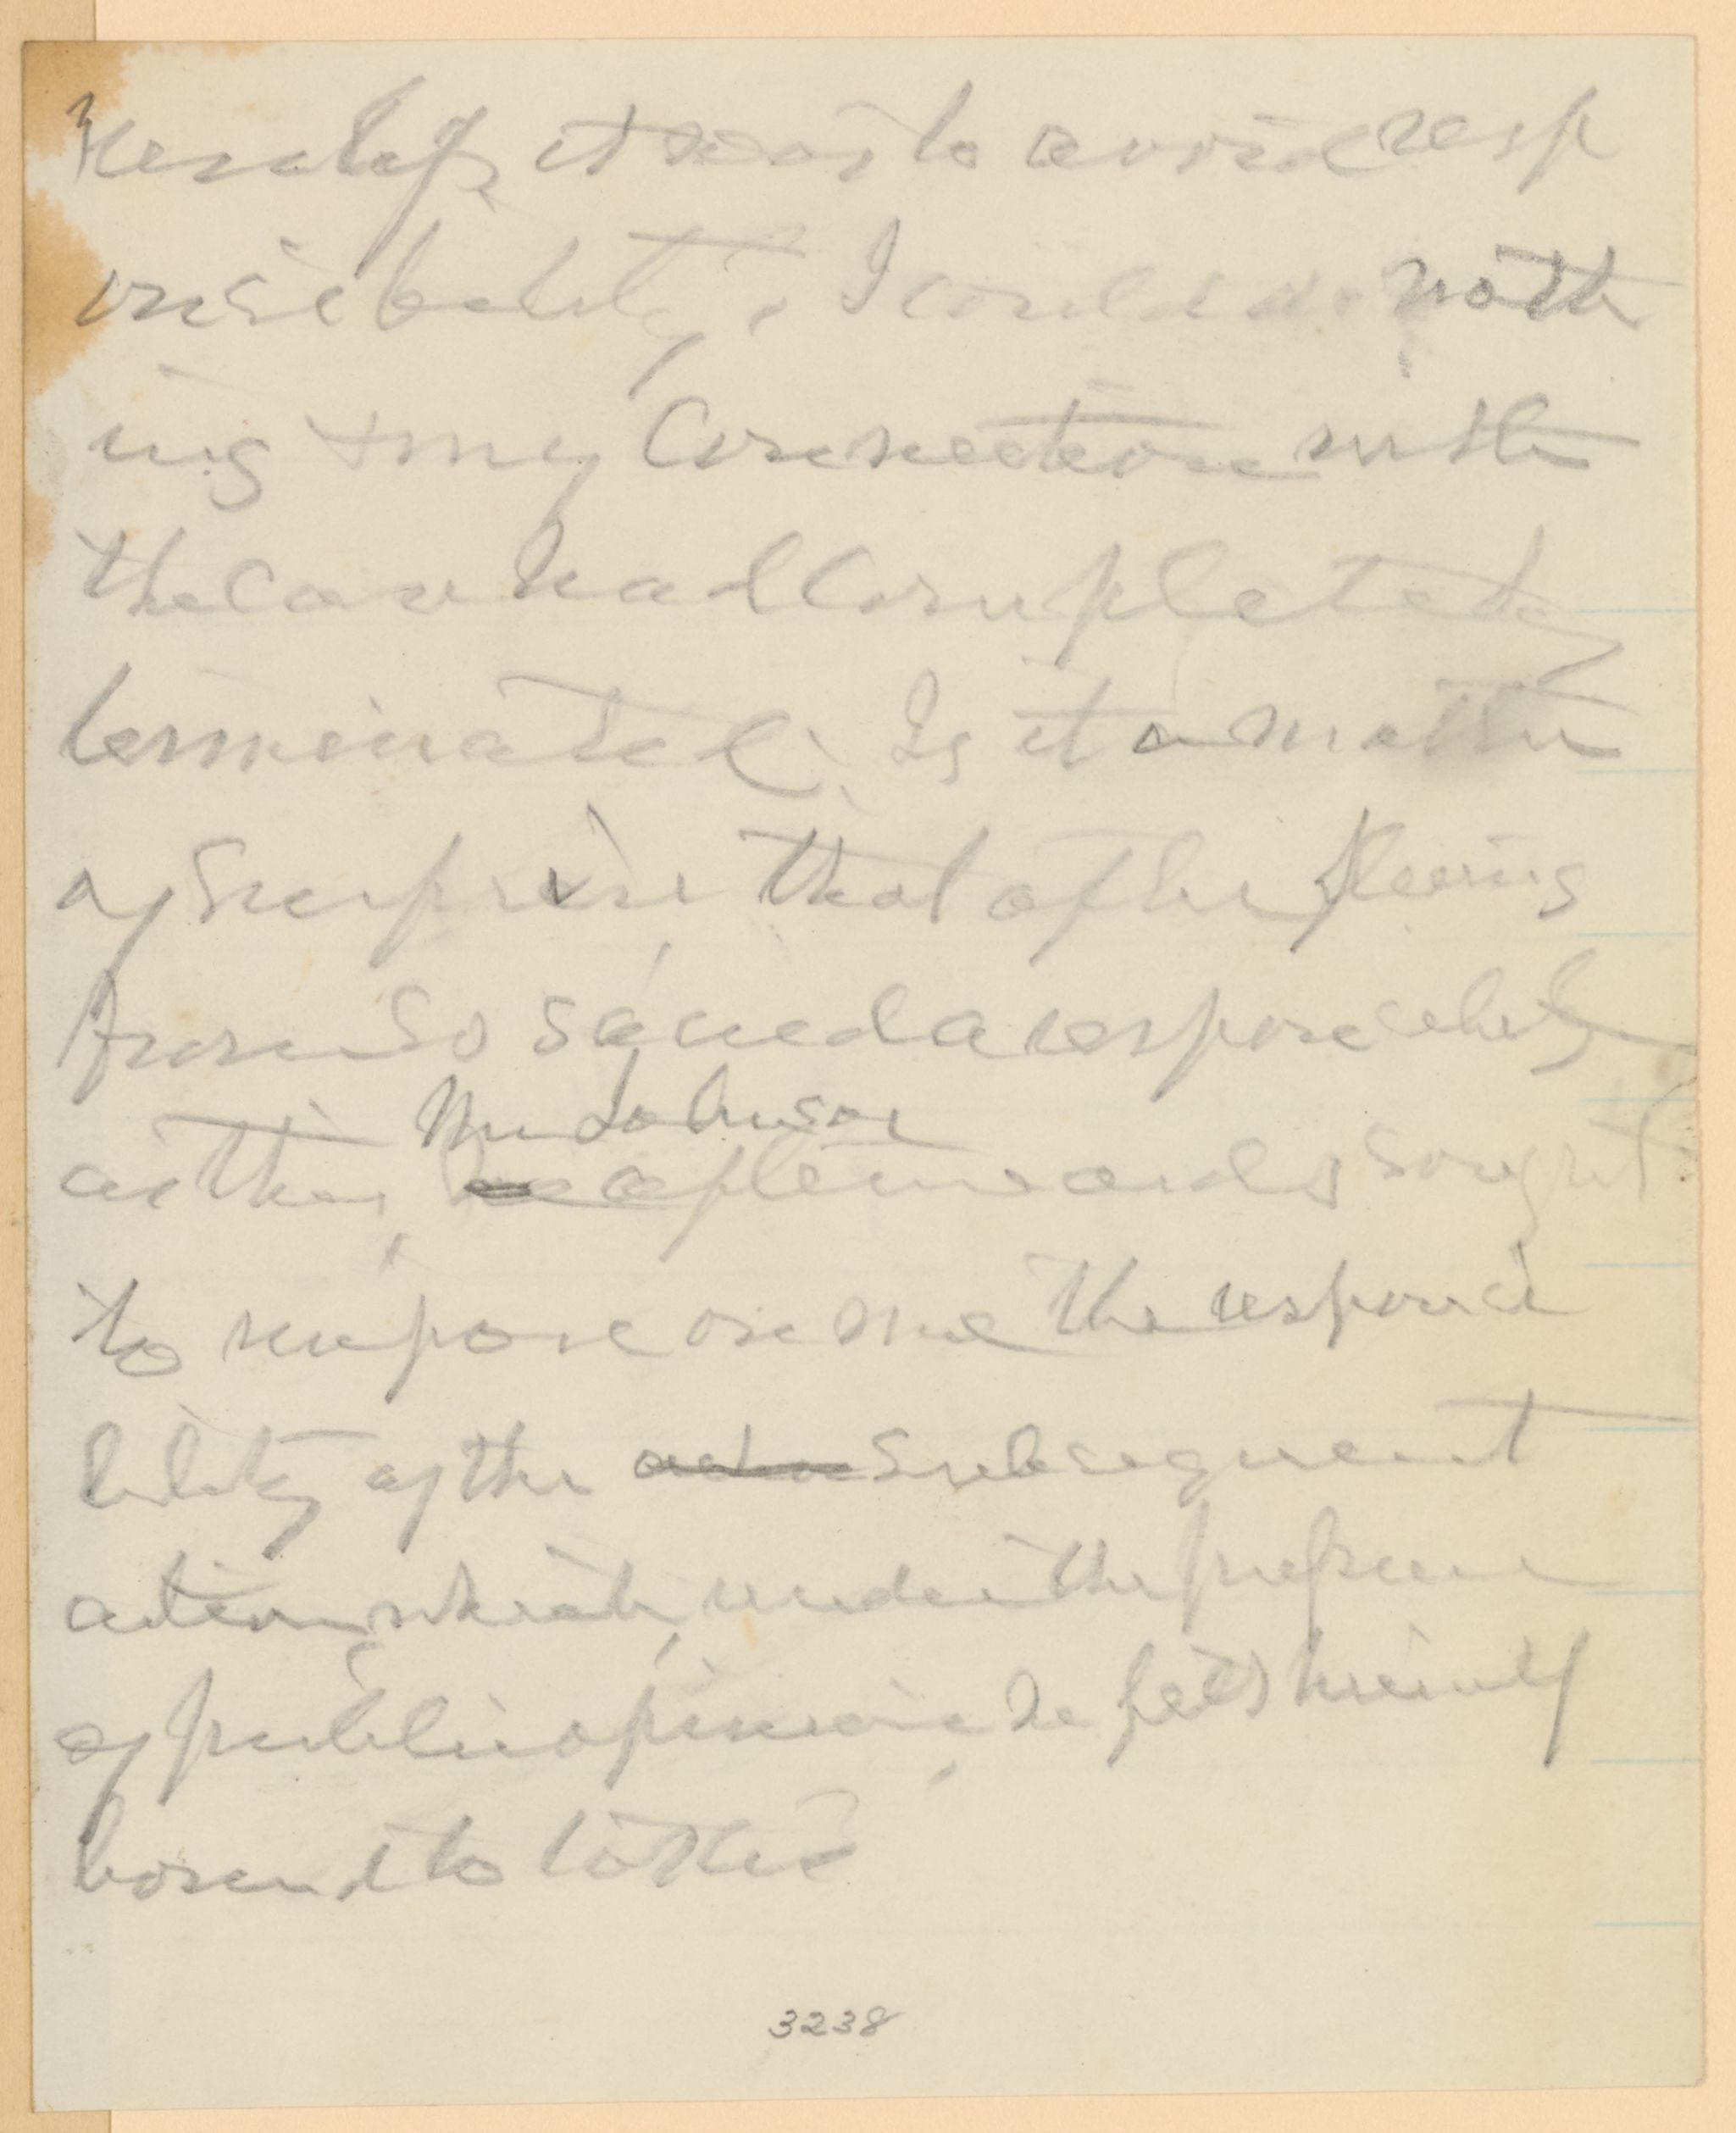 it was to avoid resp
onsibility. I could do noth
ing & my Connection with
the case had completely
terminated. Is it a matter
of surprise that after fleeing
from so sacred a responsibility
as this, Mr Johnson afterwards sought
to impose on me the responsi
bility of the subsequent
action, which, under the pressure
of public opinion, he felt himself
bound to take?
3238